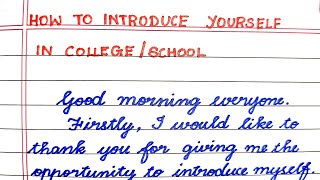 HOW TO INTRODUCE YOURSELF
IN COLLEGE/SCHOOL
Good morning everyone.
Firstly, I would like to
thank you for giving me the
opportunity to introduce myself.